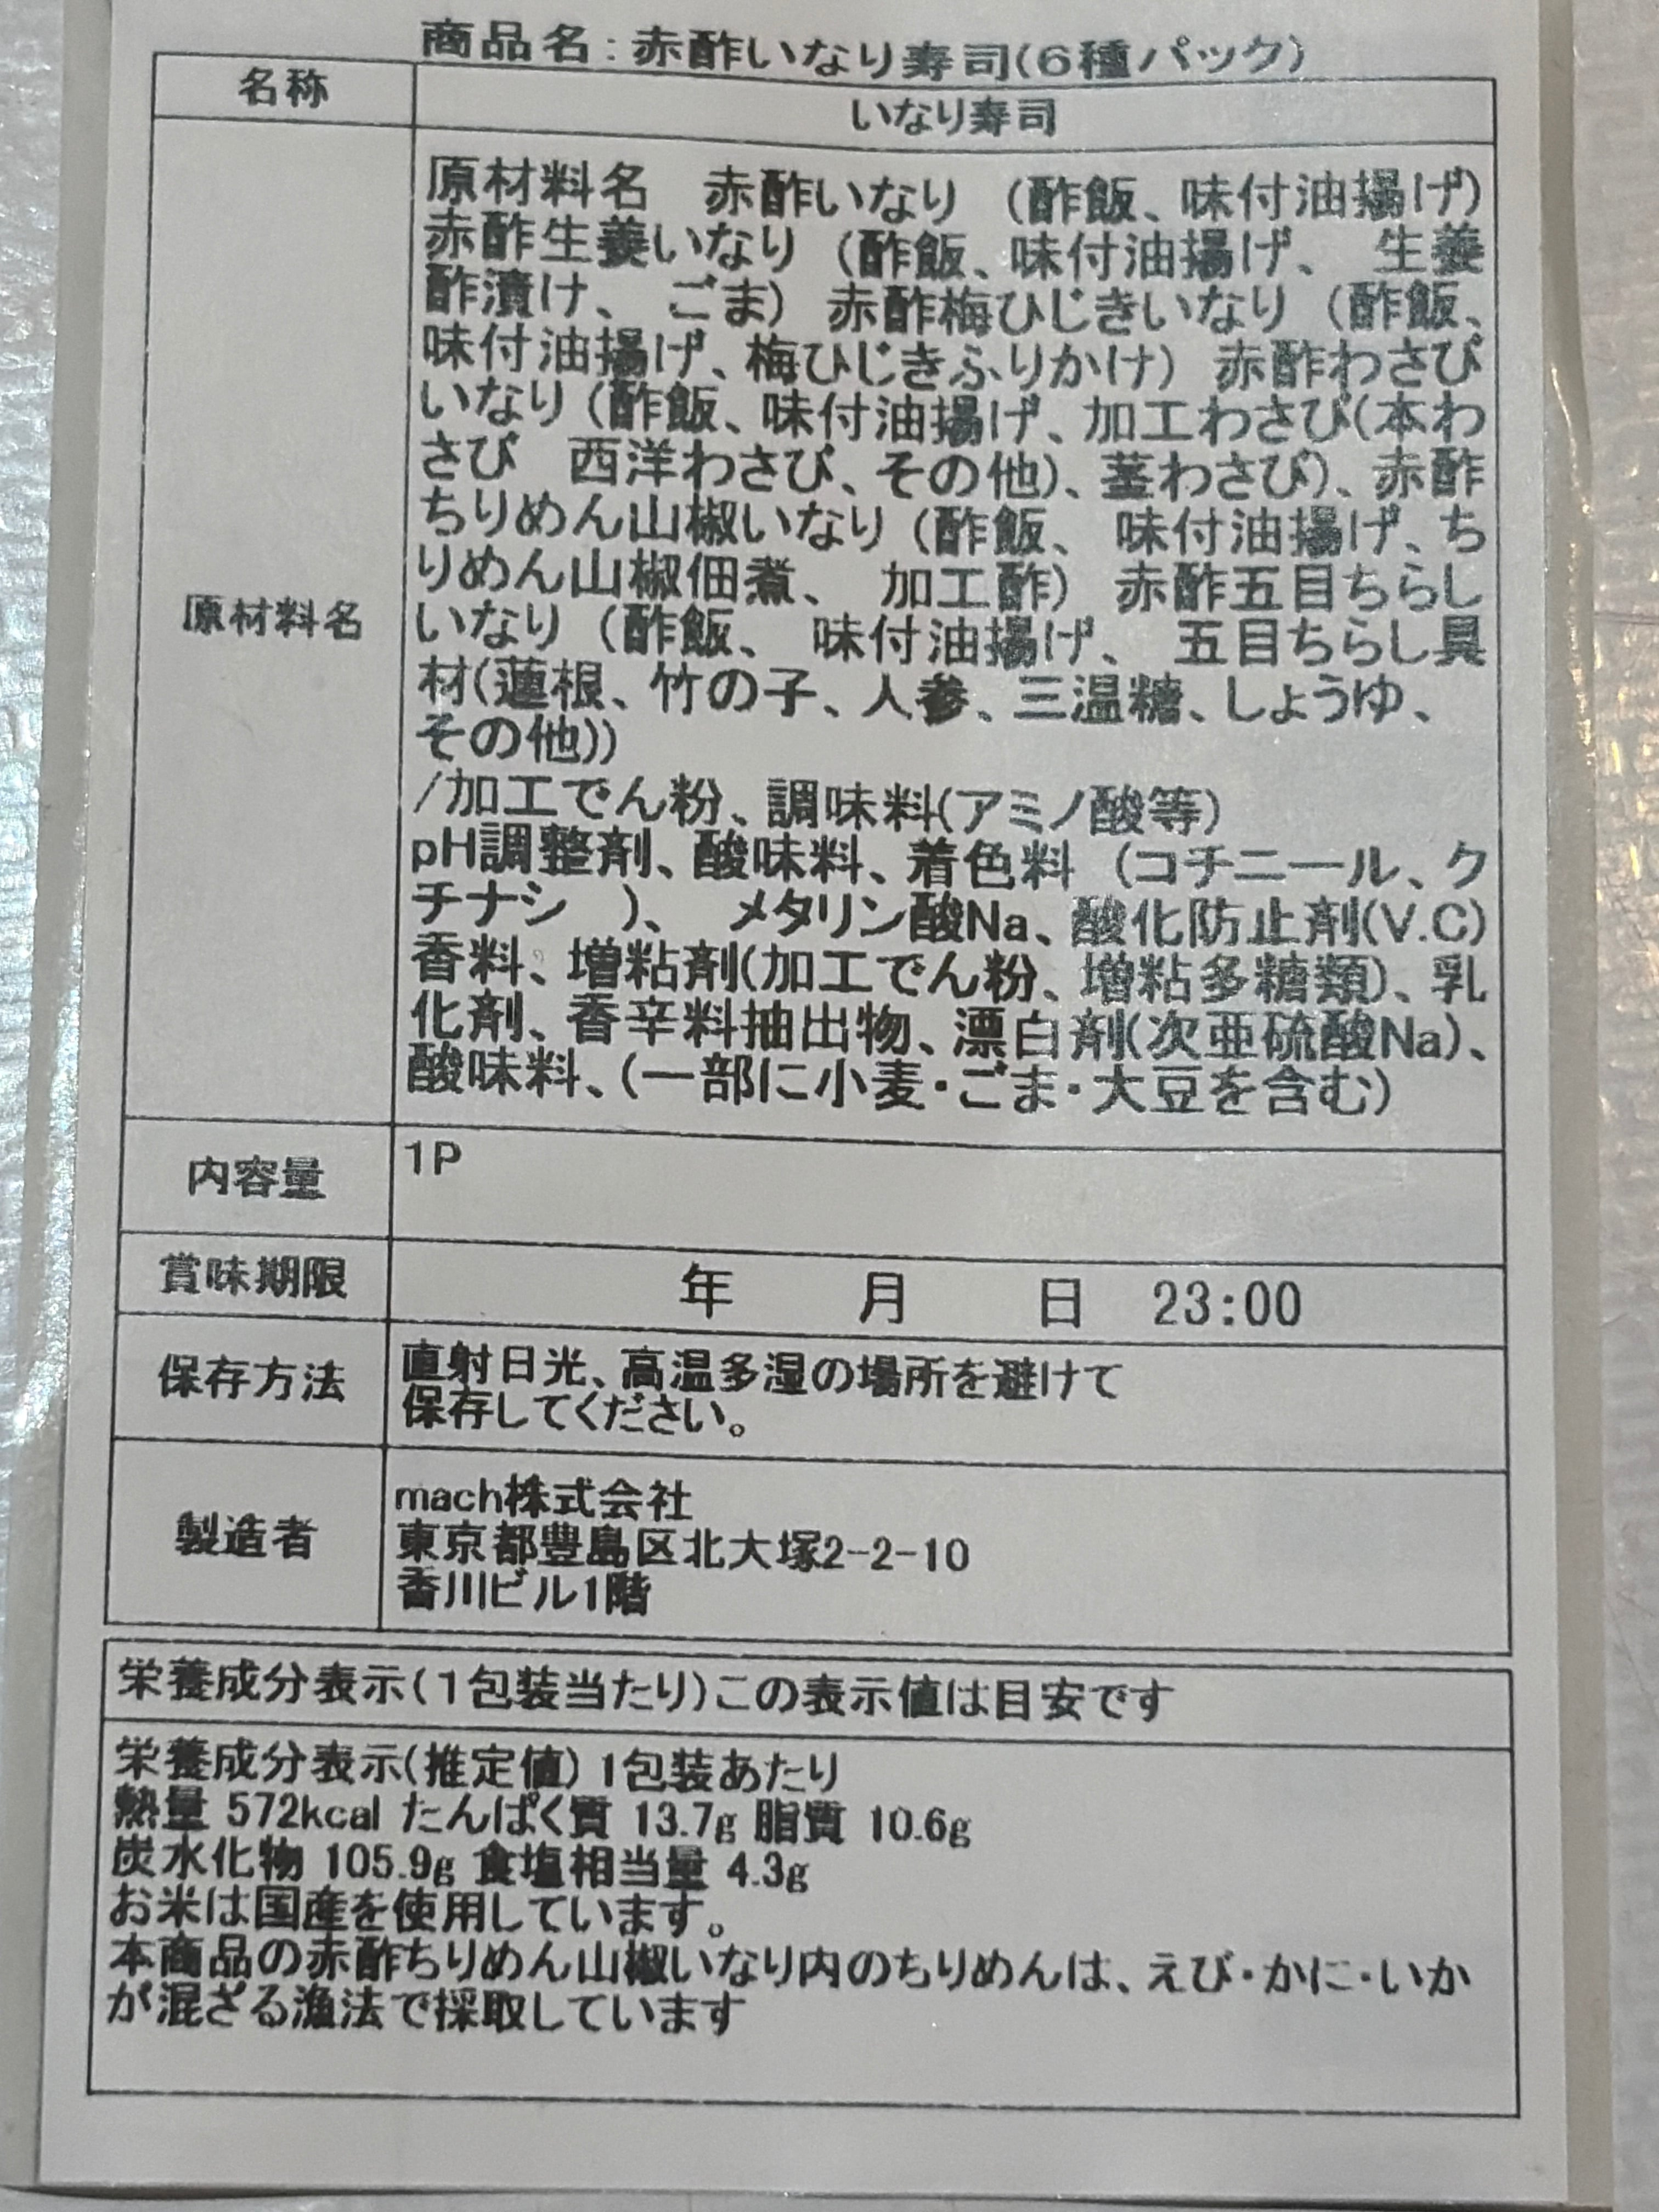 商品名:赤酢いなり寿司(6種パック)
名称
いなり寿司
原材料名
原材料名　赤酢いなり（酢飯、味付油揚げ)
赤酢生姜いなり（酢飯、味付油揚げ、　生姜
酢漬け、　ごま）赤酢梅ひじきいなり（酢飯、
味付油揚げ、梅ひじきふりかけ）赤酢わさび
いなり（酢飯、味付油揚げ、加工わさび(本わ
さび　西洋わさび、その他)、茎わさび)、赤酢
ちりめん山椒いなり（酢飯、味付油揚げ、ち
りめん山椒佃煮、　加工酢）　赤酢五目ちらし
いなり（酢飯、味付油揚げ、　五目ちらし具
材(蓮根、竹の子、人参、三温糖、しょうゆ、
その他))
/加工でん粉、調味料(アミノ酸等)
pH調整剤、酸味料、着色料（コチニール、ク
チナシ　)、　メタリン酸Na、酸化防止剤(V.C)
香料、増粘剤(加工でん粉、増粘多糖類)、乳
化剤、香辛料抽出物、漂白剤(次亜硫酸Na)、
酸味料、(一部に小麦・ごま・大豆を含む)
内容量
1P
賞味期限
年　月　日　23:00
保存方法
直射日光、高温多湿の場所を避けて
保存してください。
製造者
mach株式会社
東京都豊島区北大塚2-2-10
香川ビル1階
栄養成分表示(1包装当たり)この表示値は目安です
栄養成分表示(推定値) 1包装あたり
熱量 572kcal たんぱく質 13.7g 脂質 10.6g
炭水化物 105.9g 食塩相当量 4.3g
お米は国産を使用しています。
本商品の赤酢ちりめん山椒いなり内のちりめんは、えび・かに・いか
が混ざる漁法で採取しています